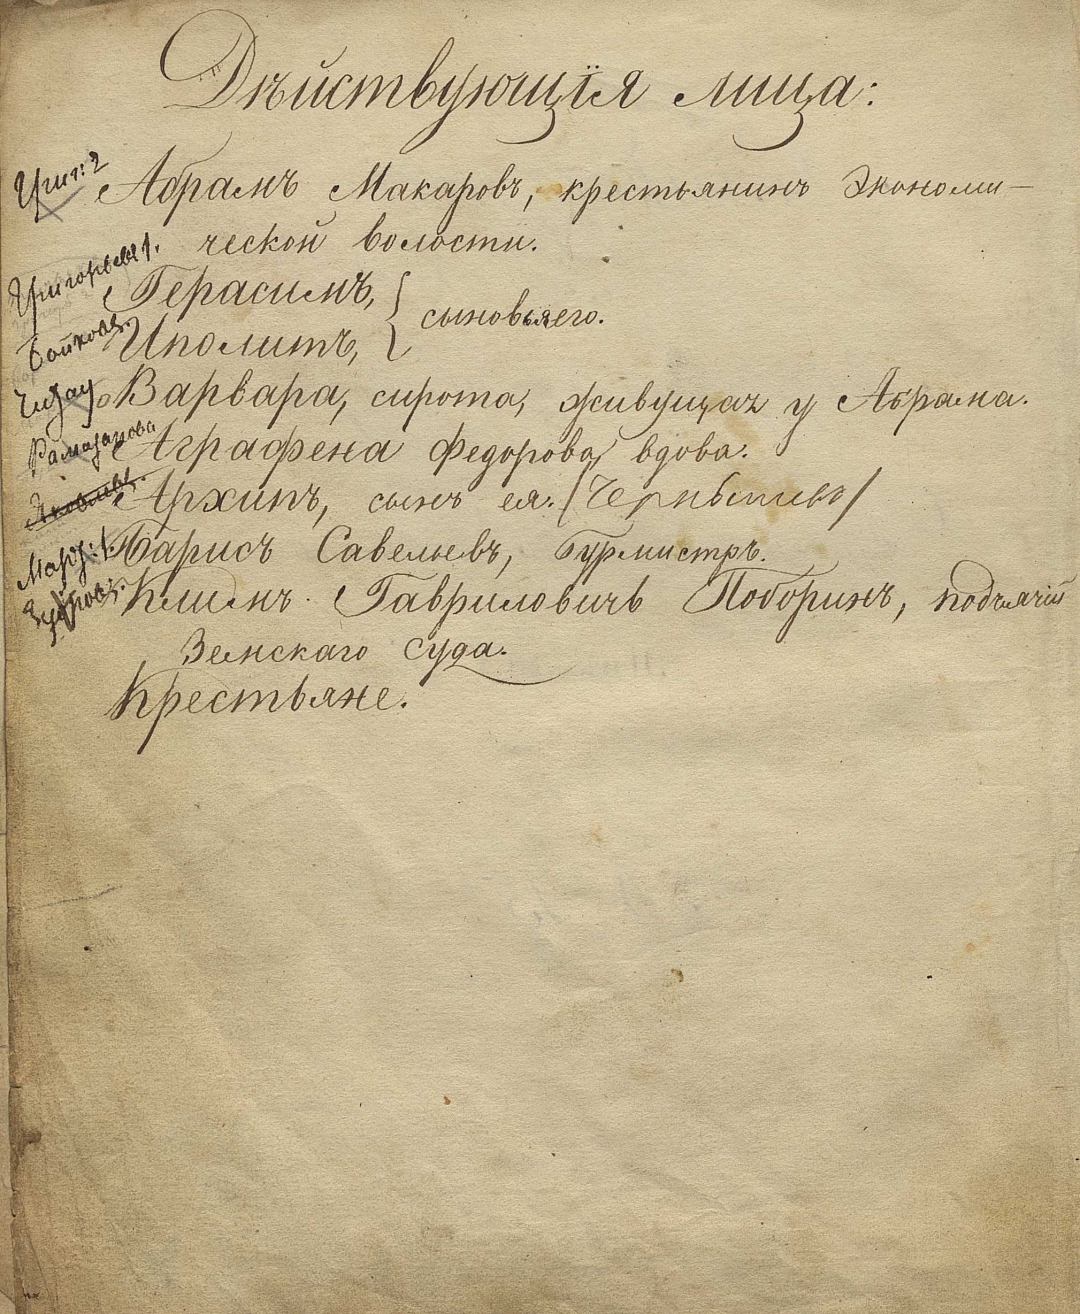 Дѣйствующія лица:
Абрамъ Макаровъ, крестьянинъ Экономи-
ческой волости.
Григорьевъ 1. Герасимъ,
Бойковъ. Иполитъ, } сыновья его.
Варвара, сирота, живущая у Абрама.
Рамазанова Аграфена Федорова, вдова.
Яковлевъ. Архипъ, сынъ ея. /Чернышево/
Барисъ Савельевъ, Бурмистръ.
Климъ Гавриловичь Поборинъ, подъячій
Земскаго суда.
Крестьяне.